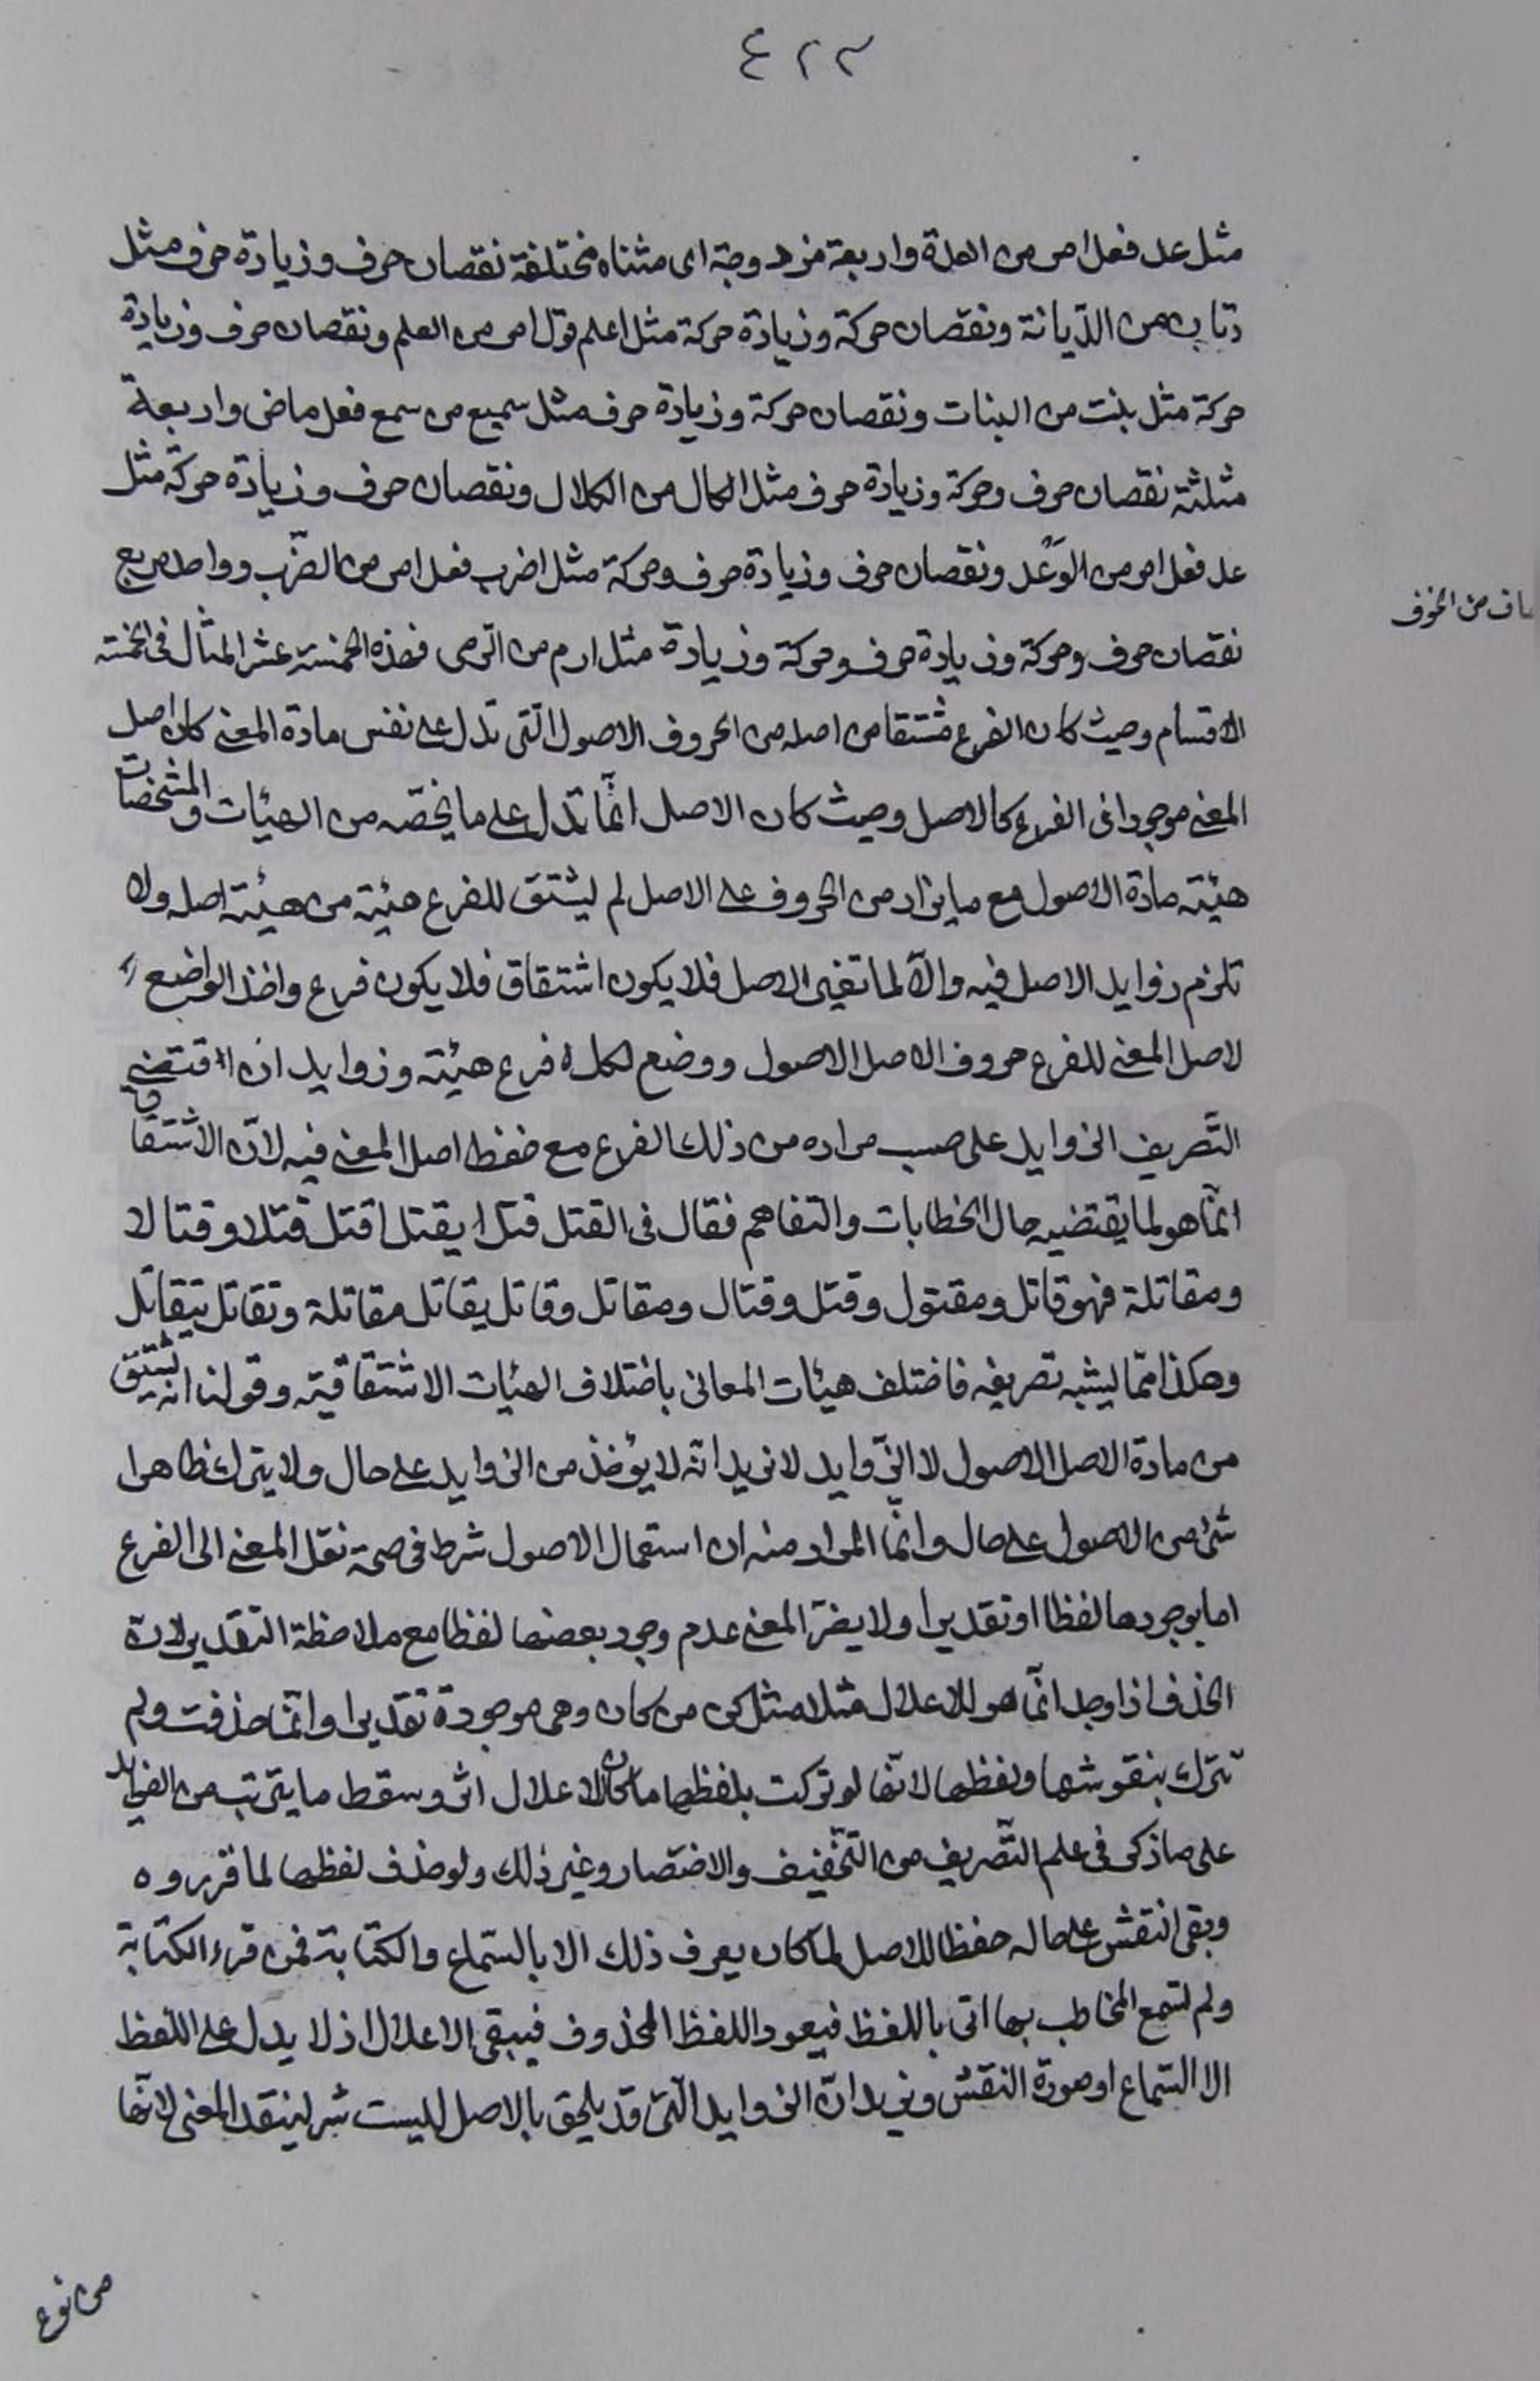 ٤٢٣
مثل عد فعل امر من العدة واربعة مزدوجة اى مثناه مختلفة نقصان حرف وزيادة حرف مثل
من الدّيانة ونقصان حركة وزيادة حركة مثل اعلم امر من العلم ونقصان حرف وزيادة
حركة مثل بنت من البنات ونقصان حركة وزيادة حرف مثل سميع من سمع فعل ماض واربعة
مثلثة نقصان حرف وحركة وزيادة حرف مثل الكال من الكلال ونقصان حرف وزيادة حركة مثل
عد فعل امر من الوَعْد ونقصان حرف وزيادة حرف وحركة مثل اضرب فعل امر من الضّرب وواحد مربع
خاف من الخوف
نقصان حرف وحركة وزيادة حرف وحركة وزيادة مثل ارم من الرّمى فهذه الخمسة عشر المثال فى الخمسة
الاقسام وحيث كان الفرع مشتقا من اصله من الحروف الاصول الّتى تدل على نفس مادة المعنى كان اصل
المعنى موجودا فى الفرع كالاصل وحيث كان الاصل انّما تدل على ما يخصّه من الهيئات والمشخصات
هيئة مادة الاصول مع ما يزاد من الحروف على الاصل لم يشتق للفرع هيئة من هيئة اصله ولا
تلزم زوايد الاصل فيه والّا لما تغير الاصل فلا يكون اشتقاق فلا يكون فرع واخذ الواضع
لاصل المعنى للفرع حروف الاصل الاصول ووضع لكل فرع هيئة وزوايد ان اقتضى
التّصريف الزوايد على حسب مراده من ذلك الفرع مع حفظ اصل المعنى فيه لانّ الاشتقاق
انّما هو لما يقتضيه حال الخطابات والتفاهم فقال فى القتل قتل يقتل اقتل قتلا وقتالا
ومقاتلة فهو قاتل ومقتول وقتل وقتال ومقاتل وقاتل يقاتل مقاتلة وتقاتل يتقاتل
وهكذا ممّا يشبه تصريفه فاختلف هيئات المعانى باختلاف الهيئات الاشتقاقية وقولنا انه يشتق
من مادة الاصل الاصول لا الزّوايد لا نريد انّه لا يؤخذ من الزوايد على حال ولا يترك ظاهرا
شئ من الاصول على حال وانّما المراد منه ان استعمال الاصول شرط فى صحة نقل المعنى الى الفرع
اما بوجودها لفظا او تقديرا ولا يضرّ المعنى عدم وجود بعضها لفظا مع ملاحظة التقدير لانّ
الحذف اذا وجد انّما هو للاعلال مثلا مثل كن من كان وهى موجودة تقديرا وانّما حذفت ولم
تترك بنقوشها ولفظها لانّها لو تركت بلفظها ما كان للاعلال اثر وسقط ما يترتب من الفوايد
على ما ذكر فى علم التّصريف من التّخفيف والاختصار وغير ذلك ولو حذف لفظها لما قرروه
وبقى النقش على حاله حفظا للاصل لما كان يعرف ذلك الا بالسّماع والكتابة فمن قرء الكتابة
ولم يسمع المخاطب بها اتى باللفظ فيعود اللفظ المحذوف فيبقى الاعلال اذ لا يدل على اللّفظ
الا السّماع او صورة النقش ونريد انّ الزوايد الّتى قد يلحق بالاصل ليست شر لينقد المعنى لانّها
من نوع